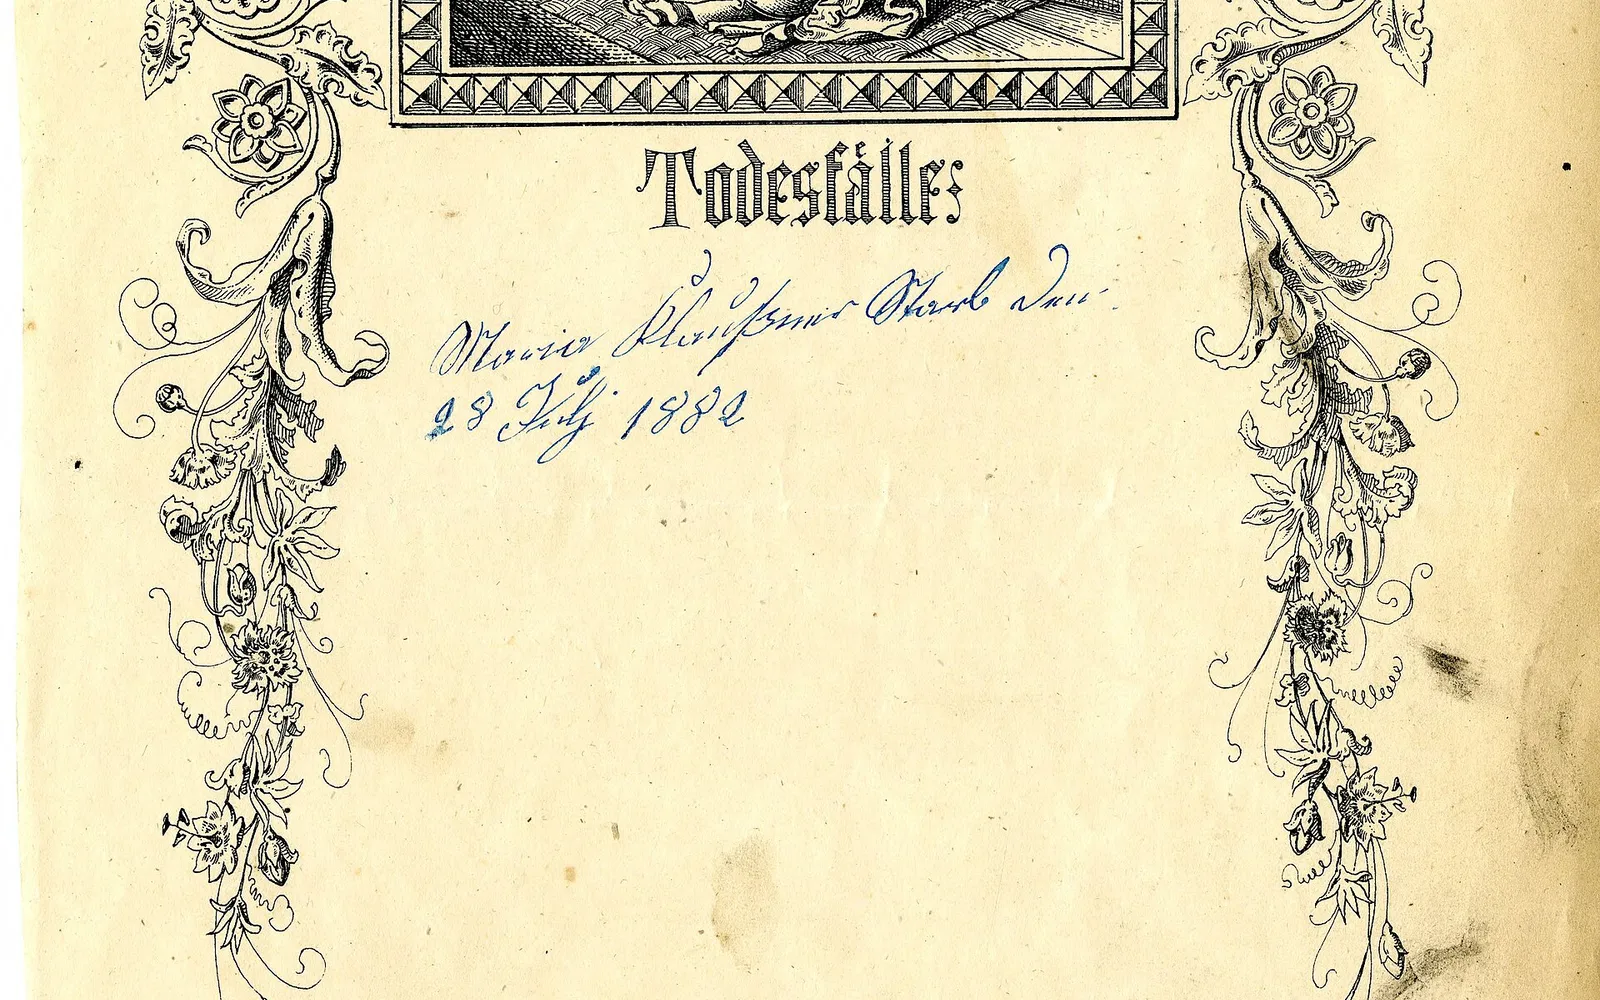 Todesfälle:
Maria Klaußner Starb den
28 Julj 1882